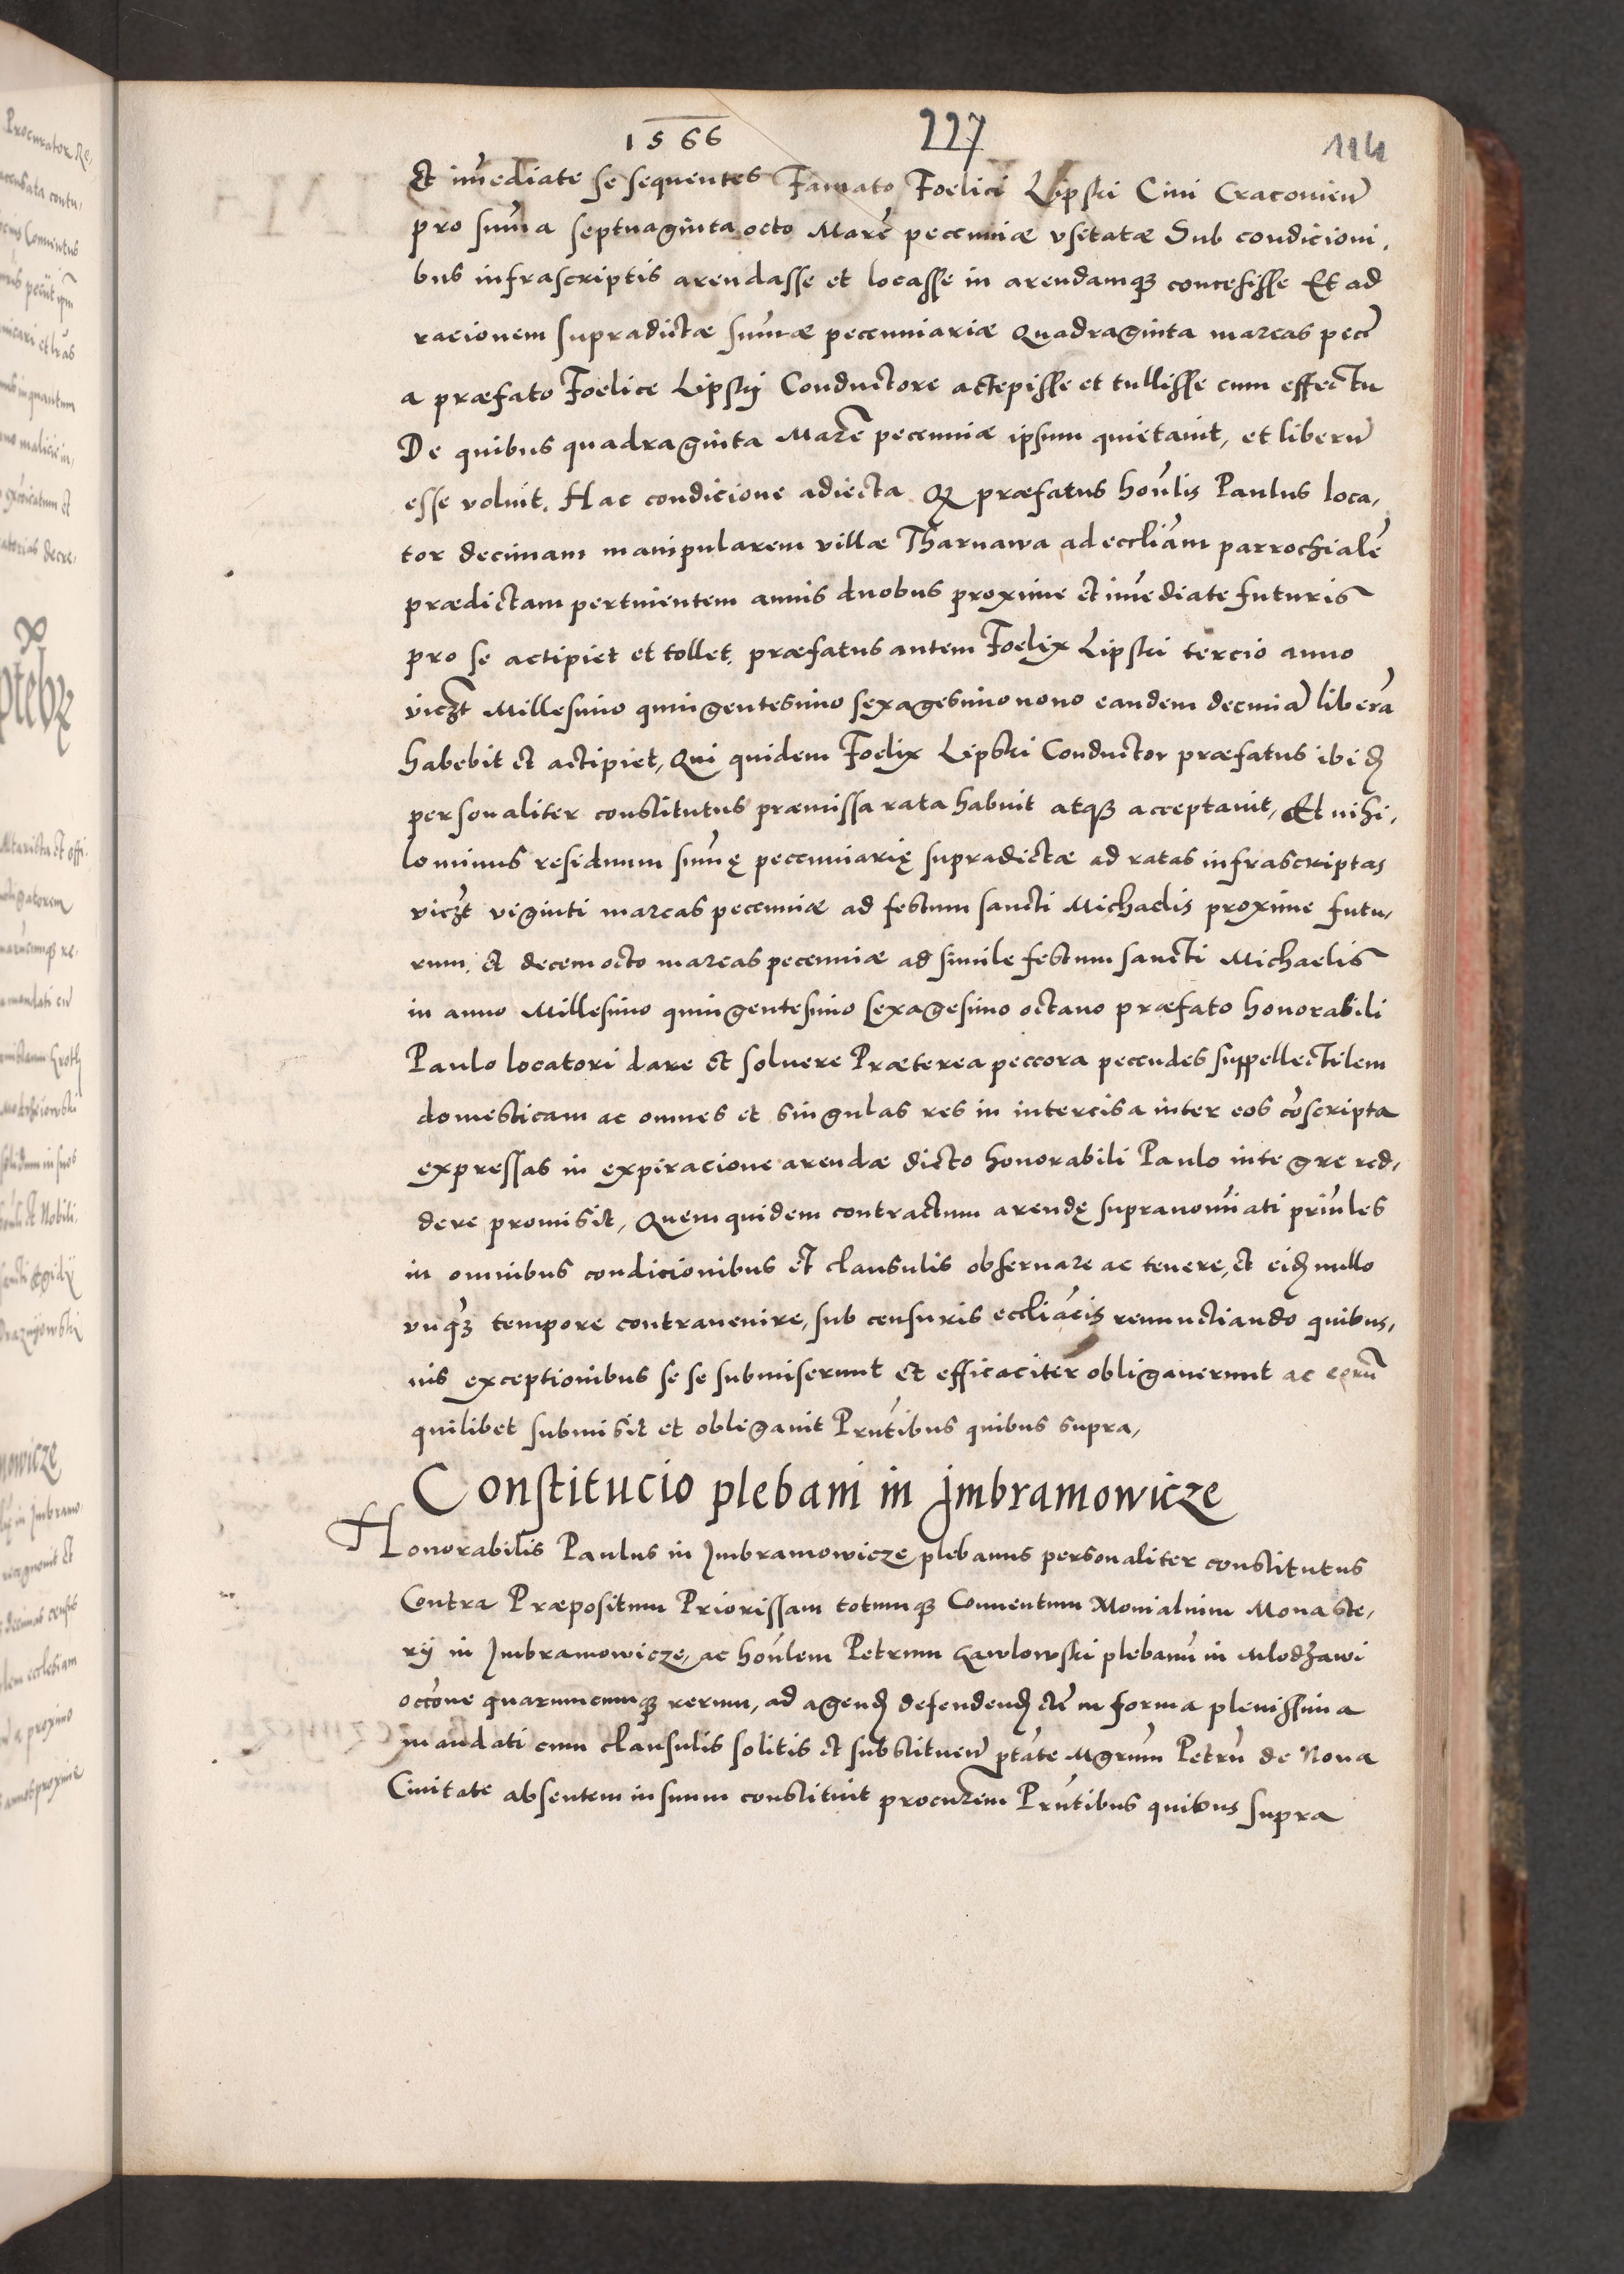 1566
227
114
Et im̄ediate se sequentes Famato Foelici Lipski Ciui Cracouieñ
pro sum̄a septuaginta octo Marc̄ pecuniæ vsitatæ Sub condicioni,
bus infrascriptis arendasse et locasse in arendamqꝫ concesisse Et ad
racionem supradictæ sum̄æ pecuniariæ Quadraginta marcas pec̄
a præfato Foelice Lipskj Conductore accepisse et tullisse cum effectu
De quibus quadraginta Marc̄ pecuniæ ipsum quietauit, et liberū
esse voluit. Hac condicione adiecta Qꝫ præfatus hoñlis Paulus loca,
tor decimam manipularem villæ Tharnawa ad eccliam̄ parrochialē
prædictam pertinentem annis duobus proxime et im̄ediate futuris
pro se accipiet et tollet. præfatus autem Foelix Lipski tercio anno
viczt Millesimo quingentesimo sexagesimo nono eandem decimā liberā
habebit et accipiet, Qui quidem Foelix Lipski Conductor præfatus ibidꝫ
personaliter constitutus præmissa rata habuit atqꝫ acceptauit, Et nihi,
lominus residuum sum̄ę pecuniarię supradictæ ad ratas infrascriptas
viczt viginti marcas pecuniæ ad festum sancti Michaelis proxime futu,
rum, et decem octo marcas pecuniæ ad simile festum sancti Michaelis
in anno Millesimo quingentesimo sexagesimo octauo præfato honorabili
Paulo locatori dare et soluere Præterea peccora peccudes suppellectilem
domesticam ac omnes et singulas res in intercisa inter eos cōscripta
expressas in expiracione arendæ dicto honorabili Paulo integre red,
dere promisit, Quemquidem contractum arendę supranom̄iati prin̄les
in omnibus condicionibus et clausulis obseruare ac tenere, et eidꝫ nullo
vnqꝫ tempore contrauenire, sub censuris eccliācis renunctiando quibus,
uis exceptionibus se se submiserunt et efficaciter obligauerunt ac eorū
quilibet submisit et obligauit Pn̄tibus quibus supra,
Constitucio plebani in Jmbramowicze
Honorabilis Paulus in Jmbramowicze plebanus personaliter constitutus
Contra Præpositum Priorissam totumqꝫ Conuentum Monialium Monaste,
rij in Jmbramowicze, ac hoñlem Petrum Gawlowski plebanū in Mlodzawi
occōne quarumcumqꝫ rerum, ad agendꝫ defendendꝫ etc̄ in forma plenissima
mandati cum clausulis solitis et substitueñ ptāte Mgrum̄ Petrū de Noua
Ciuitate absentem in suum constituit procurem̄ Pn̄tibus quibus supra